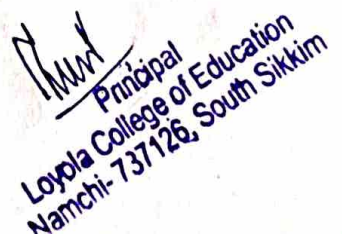 Principal
Loyola College of Education
Namchi-737126, South Sikkim